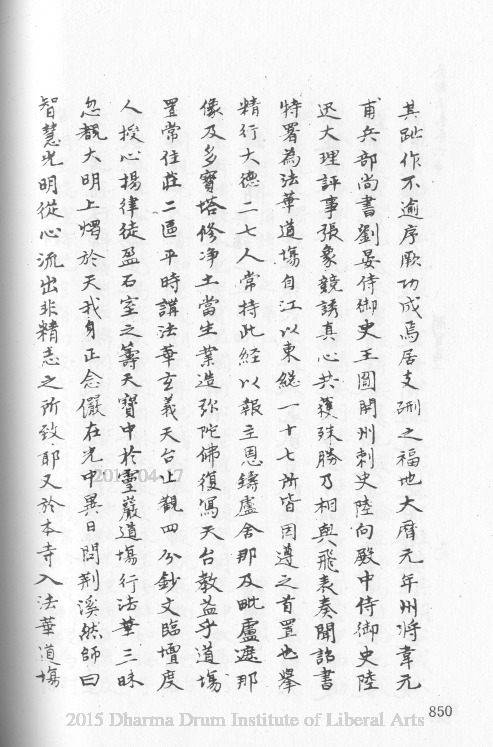 其趾作不逾序厥功成焉居支硎之福地大曆元年州將韋元
甫兵部尚書劉晏侍御史王圓開州刺史陸向殿中侍御史陸
迅大理評事張象競誘真心共獲殊勝乃相與飛表奏聞詔書
特署為法華道場自江以東緫一十七所皆因遵之首置也舉
精行大德二七人常持此經以報主恩鑄盧舍那及毗盧遮那
像及多寶塔修净土當生業造弥陀佛復寫天台教益乎道場
置常住莊二區平時講法華玄義天台止觀四分鈔文臨壇度
人授心揚律徒盈石室之籌天寶中於靈巖道場行法華三昧
忽覩大明上燭於天我身正念儼在光中異日問荆溪然師曰
智慧光明從心流出非精志之所致耶又於本寺入法華道場
850
2015-04-17
2015 Dharma Drum Institute of Liberal Arts